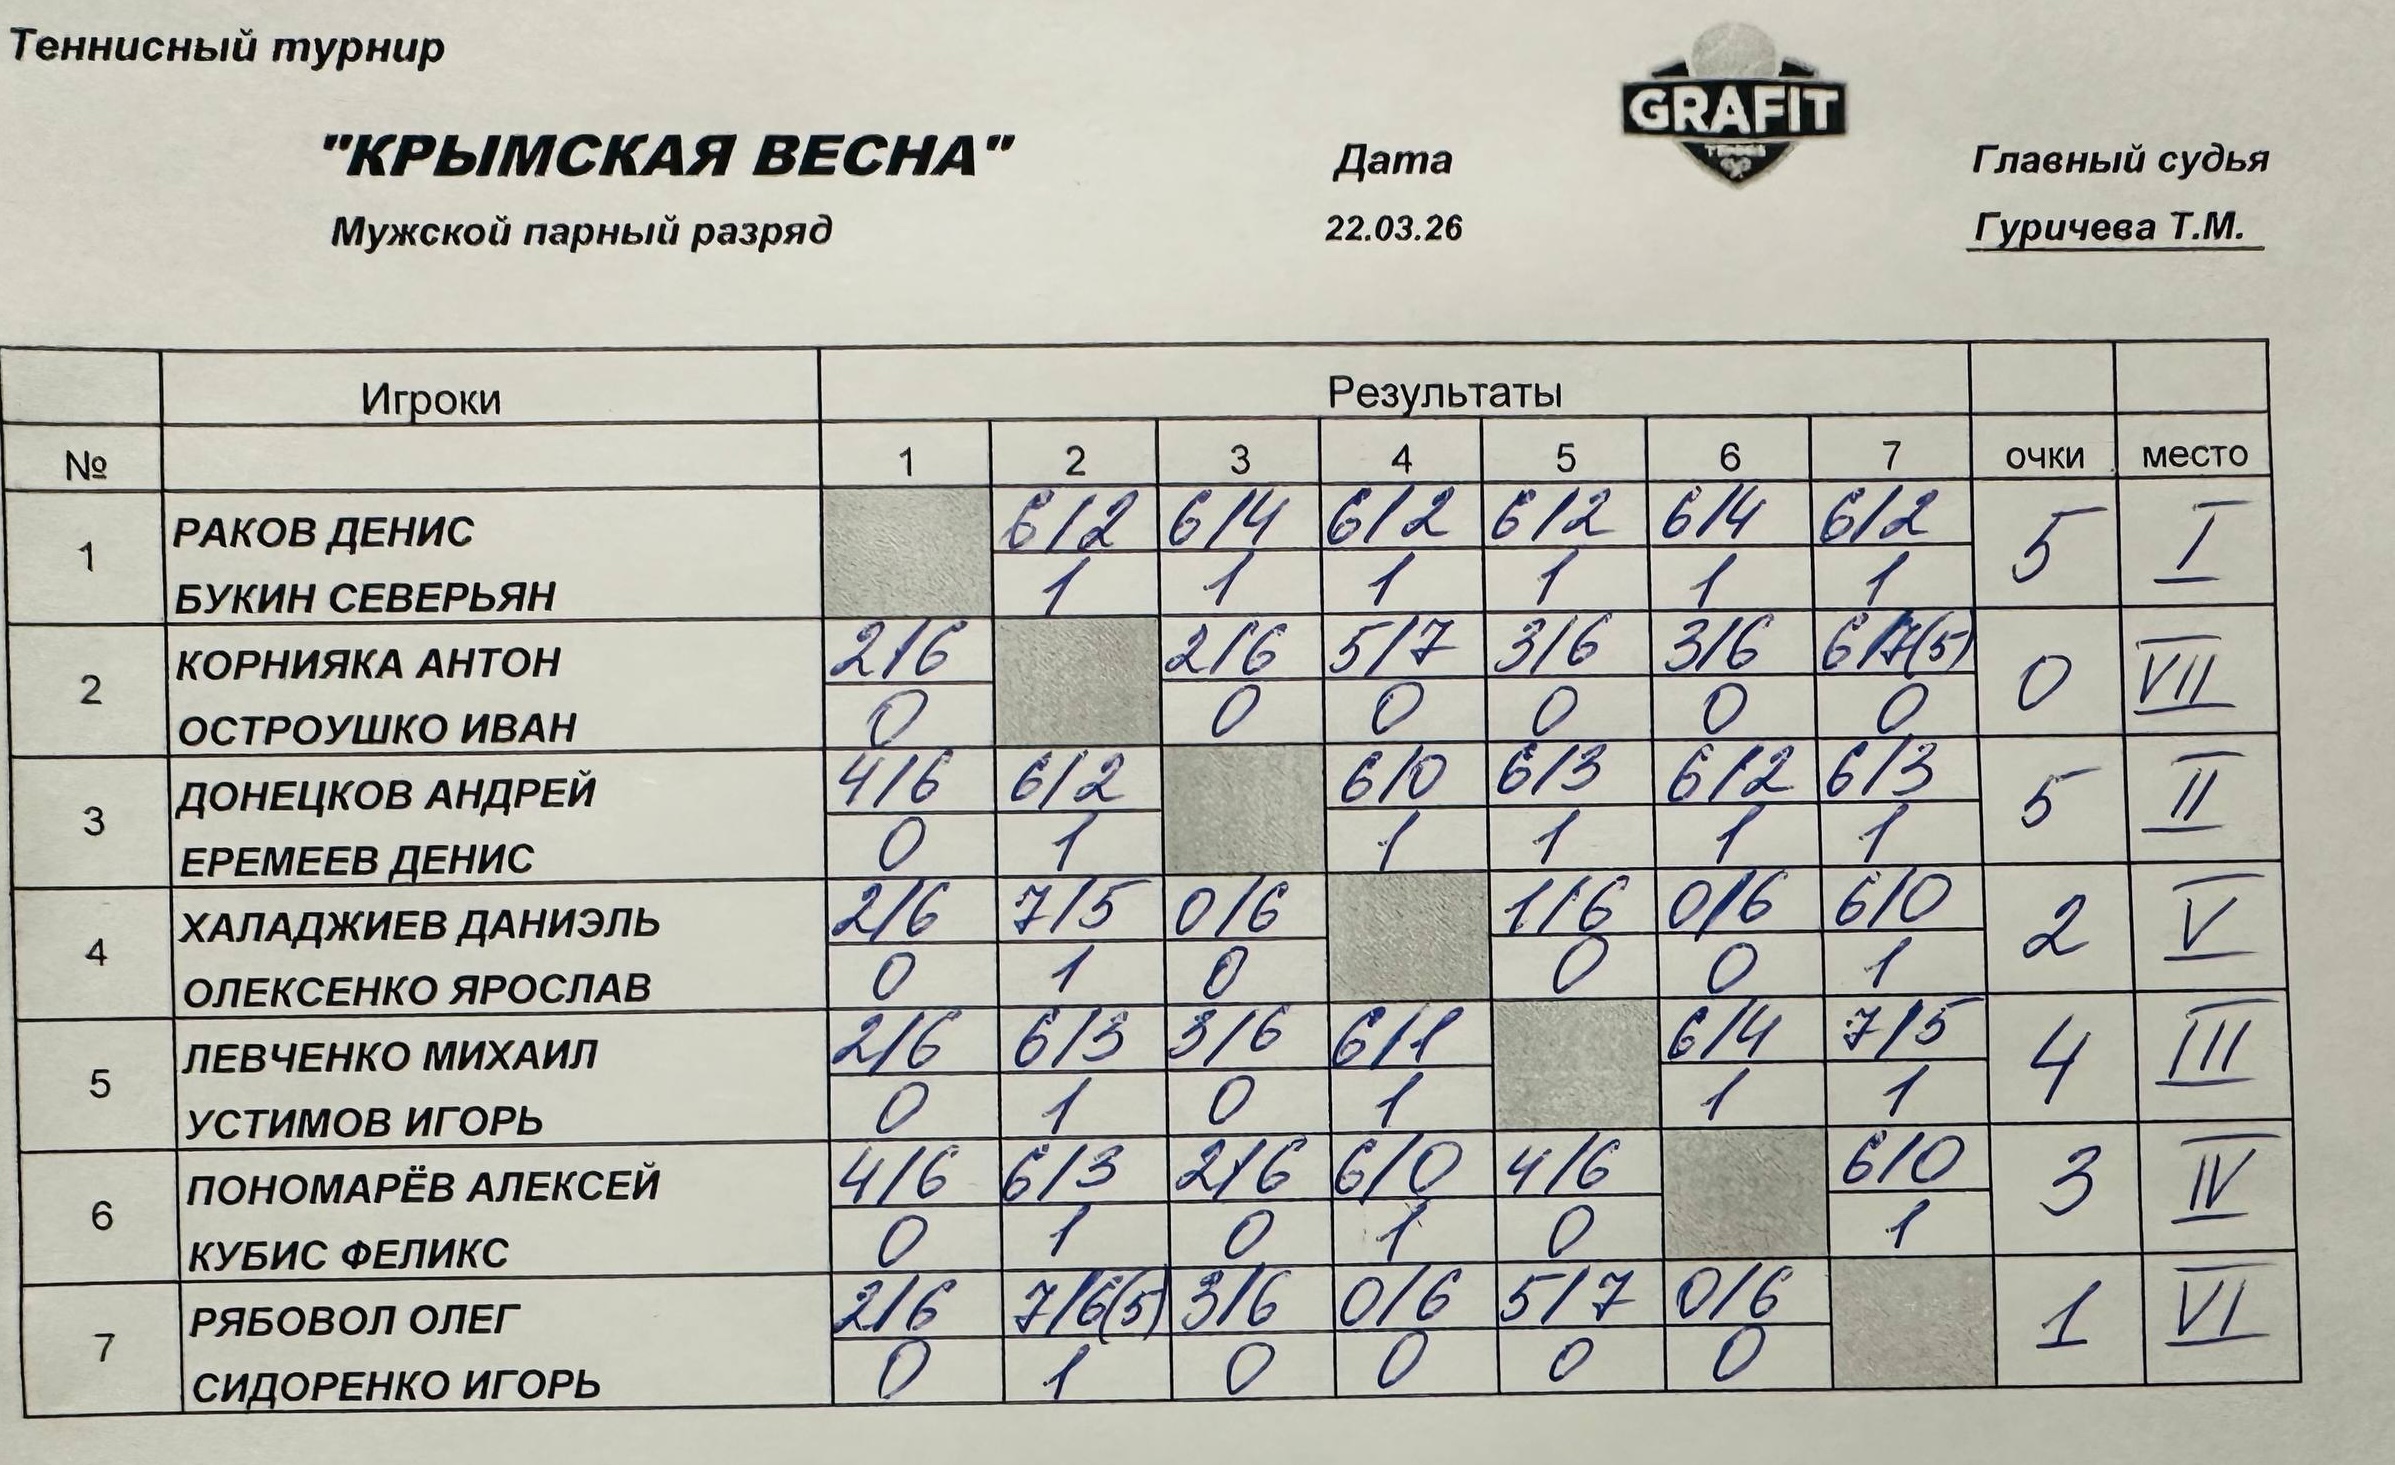 Теннисный турнир
GRAFIT
"КРЫМСКАЯ ВЕСНА" Дата Главный судья
Мужской парный разряд 22.03.26 Гуричева Т.М.
Игроки Результаты
№ 1 2 3 4 5 6 7 очки место
РАКОВ ДЕНИС 6/2 6/4 6/2 6/2 6/4 6/2
1 5 I
БУКИН СЕВЕРЬЯН 1 1 1 1 1 1
КОРНИЯКА АНТОН 2/6 2/6 5/7 3/6 3/6 6/7(5)
2 0 VII
ОСТРОУШКО ИВАН 0 0 0 0 0 0
ДОНЕЦКОВ АНДРЕЙ 4/6 6/2 6/0 6/3 6/2 6/3
3 5 II
ЕРЕМЕЕВ ДЕНИС 0 1 1 1 1 1
ХАЛАДЖИЕВ ДАНИЭЛЬ 2/6 7/5 0/6 1/6 0/6 6/0
4 2 V
ОЛЕКСЕНКО ЯРОСЛАВ 0 1 0 0 0 1
ЛЕВЧЕНКО МИХАИЛ 2/6 6/3 3/6 6/1 6/4 7/5
5 4 III
УСТИМОВ ИГОРЬ 0 1 0 1 1 1
ПОНОМАРЁВ АЛЕКСЕЙ 4/6 6/3 2/6 6/0 4/6 6/0
6 3 IV
КУБИС ФЕЛИКС 0 1 0 1 0 1
РЯБОВОЛ ОЛЕГ 2/6 7/6(5) 3/6 0/6 5/7 0/6
7 1 VI
СИДОРЕНКО ИГОРЬ 0 1 0 0 0 0